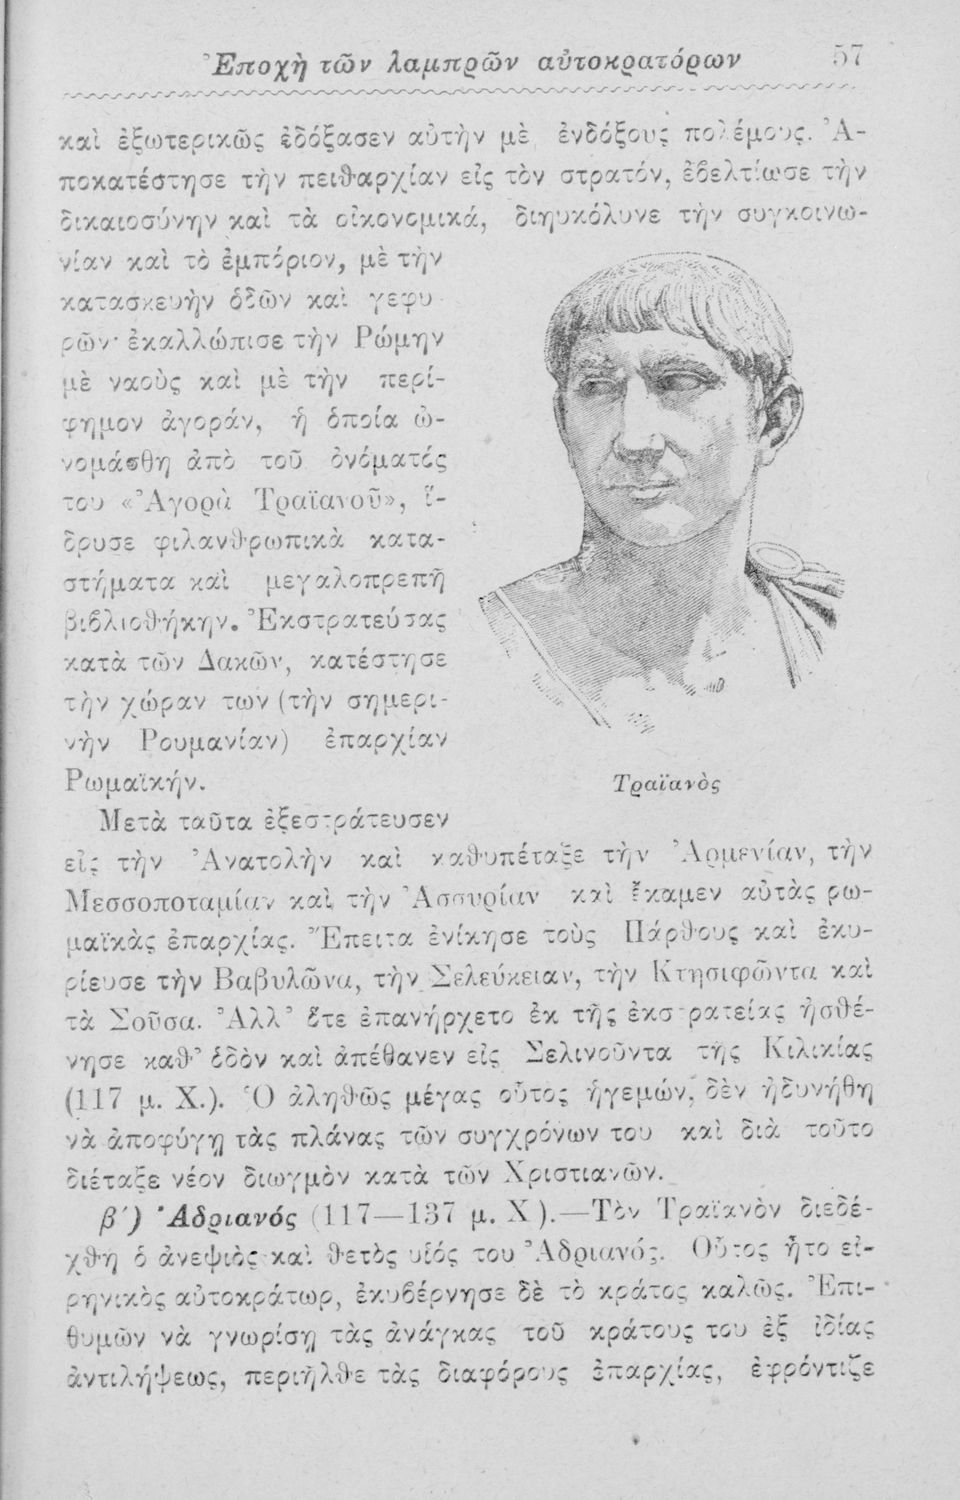 Ἐποχὴ τῶν λαμπρῶν αὐτοκρατόρων 57
καὶ ἐξωτερικῶς ἐδόξασεν αὐτὴν μὲ ἐνδόξους πολέμους. Ἀ-
ποκατέστησε τὴν πειθαρχίαν εἰς τὸν στρατόν, ἐβελτίωσε τὴν
δικαιοσύνην καὶ τὰ οἰκονομικά, διηυκόλυνε τὴν συγκοινω-
νίαν καὶ τὸ ἐμπόριον, μὲ τὴν
κατασκευὴν ὁδῶν καὶ γεφυ-
ρῶν· ἐκαλλώπισε τὴν Ρώμην
μὲ ναοὺς καὶ μὲ τὴν περί-
φημον ἀγοράν, ἡ ὁποία ὠ-
νομάσθη ἀπὸ τοῦ ὀνόματός
του «Ἀγορὰ Τραϊανοῦ», ἵ-
δρυσε φιλανθρωπικὰ κατα-
στήματα καὶ μεγαλοπρεπῆ
βιβλιοθήκην. Ἐκστρατεύσας
κατὰ τῶν Δακῶν, κατέστησε
τὴν χώραν των (τὴν σημερι-
νὴν Ρουμανίαν) ἐπαρχίαν
Ρωμαϊκήν.
Τραϊανὸς
Μετὰ ταῦτα ἐξεστράτευσεν
εἰς τὴν Ἀνατολὴν καὶ καθυπέταξε τὴν Ἀρμενίαν, τὴν
Μεσσοποταμίαν καὶ τὴν Ἀσσυρίαν καὶ ἔκαμεν αὐτὰς ρω-
μαϊκὰς ἐπαρχίας. Ἔπειτα ἐνίκησε τοὺς Πάρθους καὶ ἐκυ-
ρίευσε τὴν Βαβυλῶνα, τὴν Σελεύκειαν, τὴν Κτησιφῶντα καὶ
τὰ Σοῦσα. Ἀλλ’ ὅτε ἐπανήρχετο ἐκ τῆς ἐκστρατείας ἠσθέ-
νησε καθ’ ὁδὸν καὶ ἀπέθανεν εἰς Σελινοῦντα τῆς Κιλικίας
(117 μ. Χ.). Ὁ ἀληθῶς μέγας οὗτος ἡγεμών, δὲν ἠδυνήθη
νὰ ἀποφύγῃ τὰς πλάνας τῶν συγχρόνων του καὶ διὰ τοῦτο
διέταξε νέον διωγμὸν κατὰ τῶν Χριστιανῶν.
β΄) Ἀδριανός (117—137 μ. Χ).—Τὸν Τραϊανὸν διεδέ-
χθη ὁ ἀνεψιὸς καὶ θετὸς υἱός του Ἀδριανός. Οὗτος ἦτο εἰ-
ρηνικὸς αὐτοκράτωρ, ἐκυβέρνησε δὲ τὸ κράτος καλῶς. Ἐπι-
θυμῶν νὰ γνωρίσῃ τὰς ἀνάγκας τοῦ κράτους του ἐξ ἰδίας
ἀντιλήψεως, περιῆλθε τὰς διαφόρους ἐπαρχίας, ἐφρόντιζε